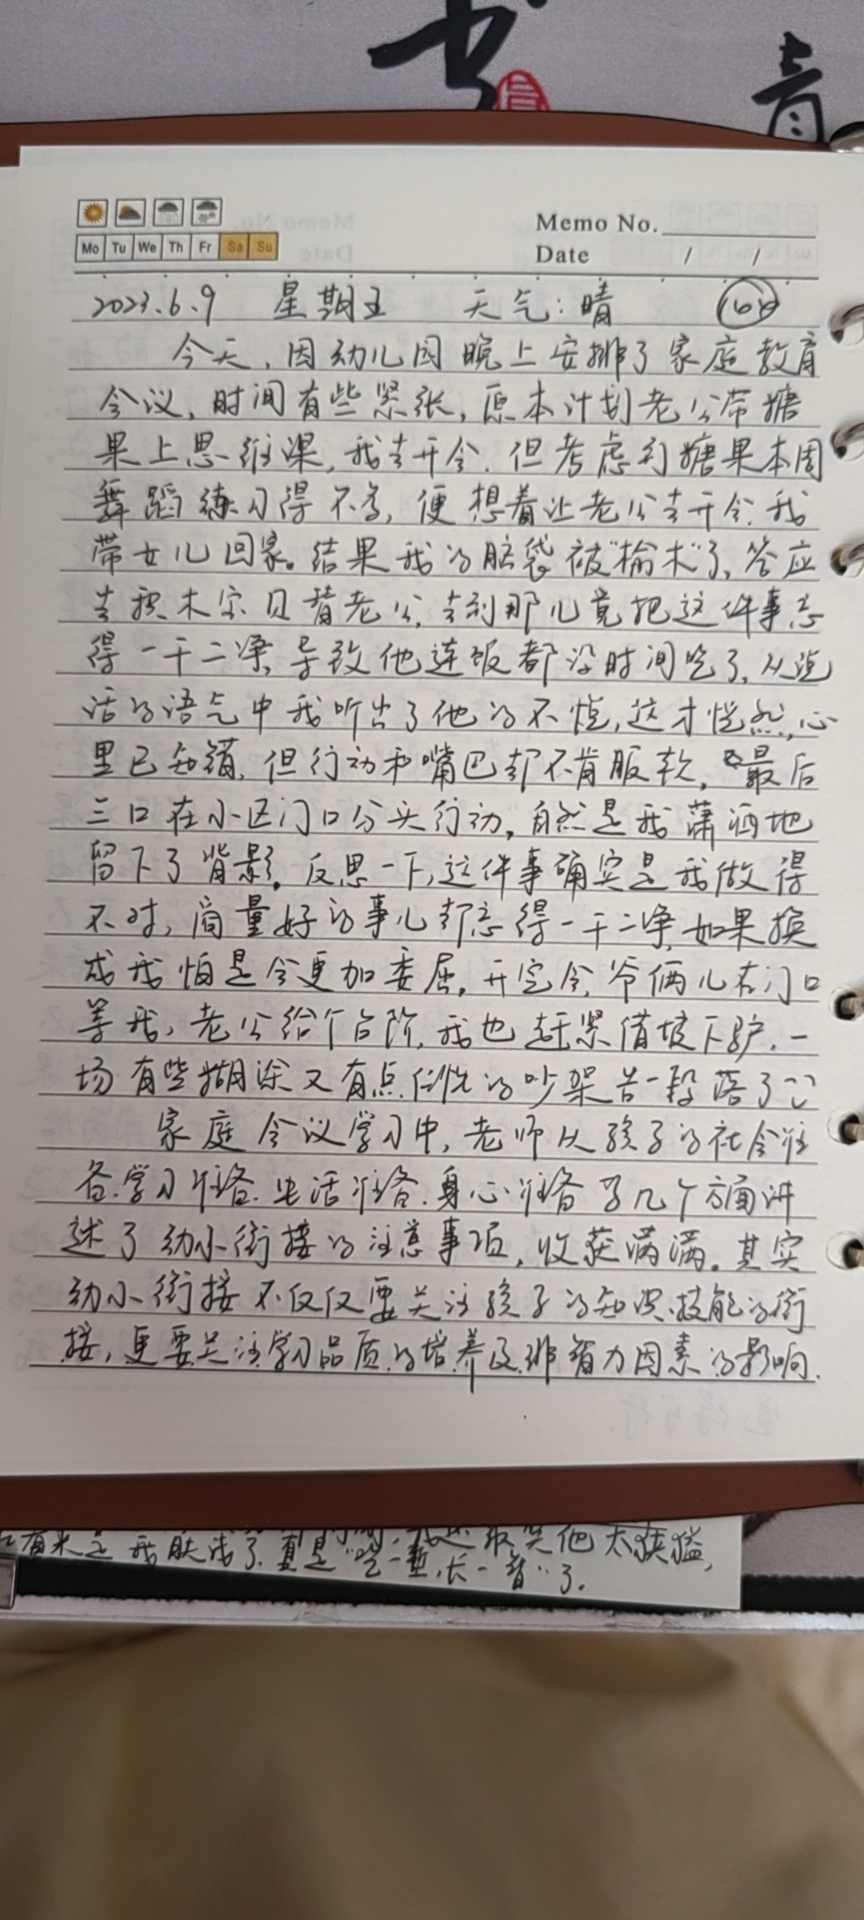 青
Memo No.
Mo Tu We Th Fr Sa Su
Date / /
2023.6.9 星期五 天气:晴
今天,因幼儿园晚上安排了家庭教育
会议,时间有些紧张,原本计划老公带糖
果上思维课,我去开会.但考虑到糖果本周
舞蹈练习得不多,便想着让老公去开会,我
带女儿回家。结果我的脑袋被“榆木”了,答应
去积木宝贝替老公,去到那儿竟把这件事忘
得一干二净,导致他连饭都没时间吃了,从说
话的语气中我听出了他的不悦,这才恍然,心
里已知错,但行动和嘴巴却不肯服软,最后
三口在小区门口分头行动,自然是我潇洒地
留下了背影。反思一下,这件事确实是我做得
不对,商量好的事儿却忘得一干二净,如果换
成我怕是会更加委屈。开完会,爷俩儿在门口
等我,老公给个台阶,我也赶紧借坡下驴,一
场有些糊涂又有点的吵架告一段落了
家庭会议学习中,老师从孩子的社会准
备.学习准备.生活准备.身心准备等几个方面讲
述了幼小衔接的注意事项,收获满满。其实
幼小衔接不仅仅要关注孩子的知识、技能的衔
接,更要关注学习品质的培养及非智力因素的影响.
有米是我肤浅了.真是“吃一堑,长一智”了.
太狭隘,